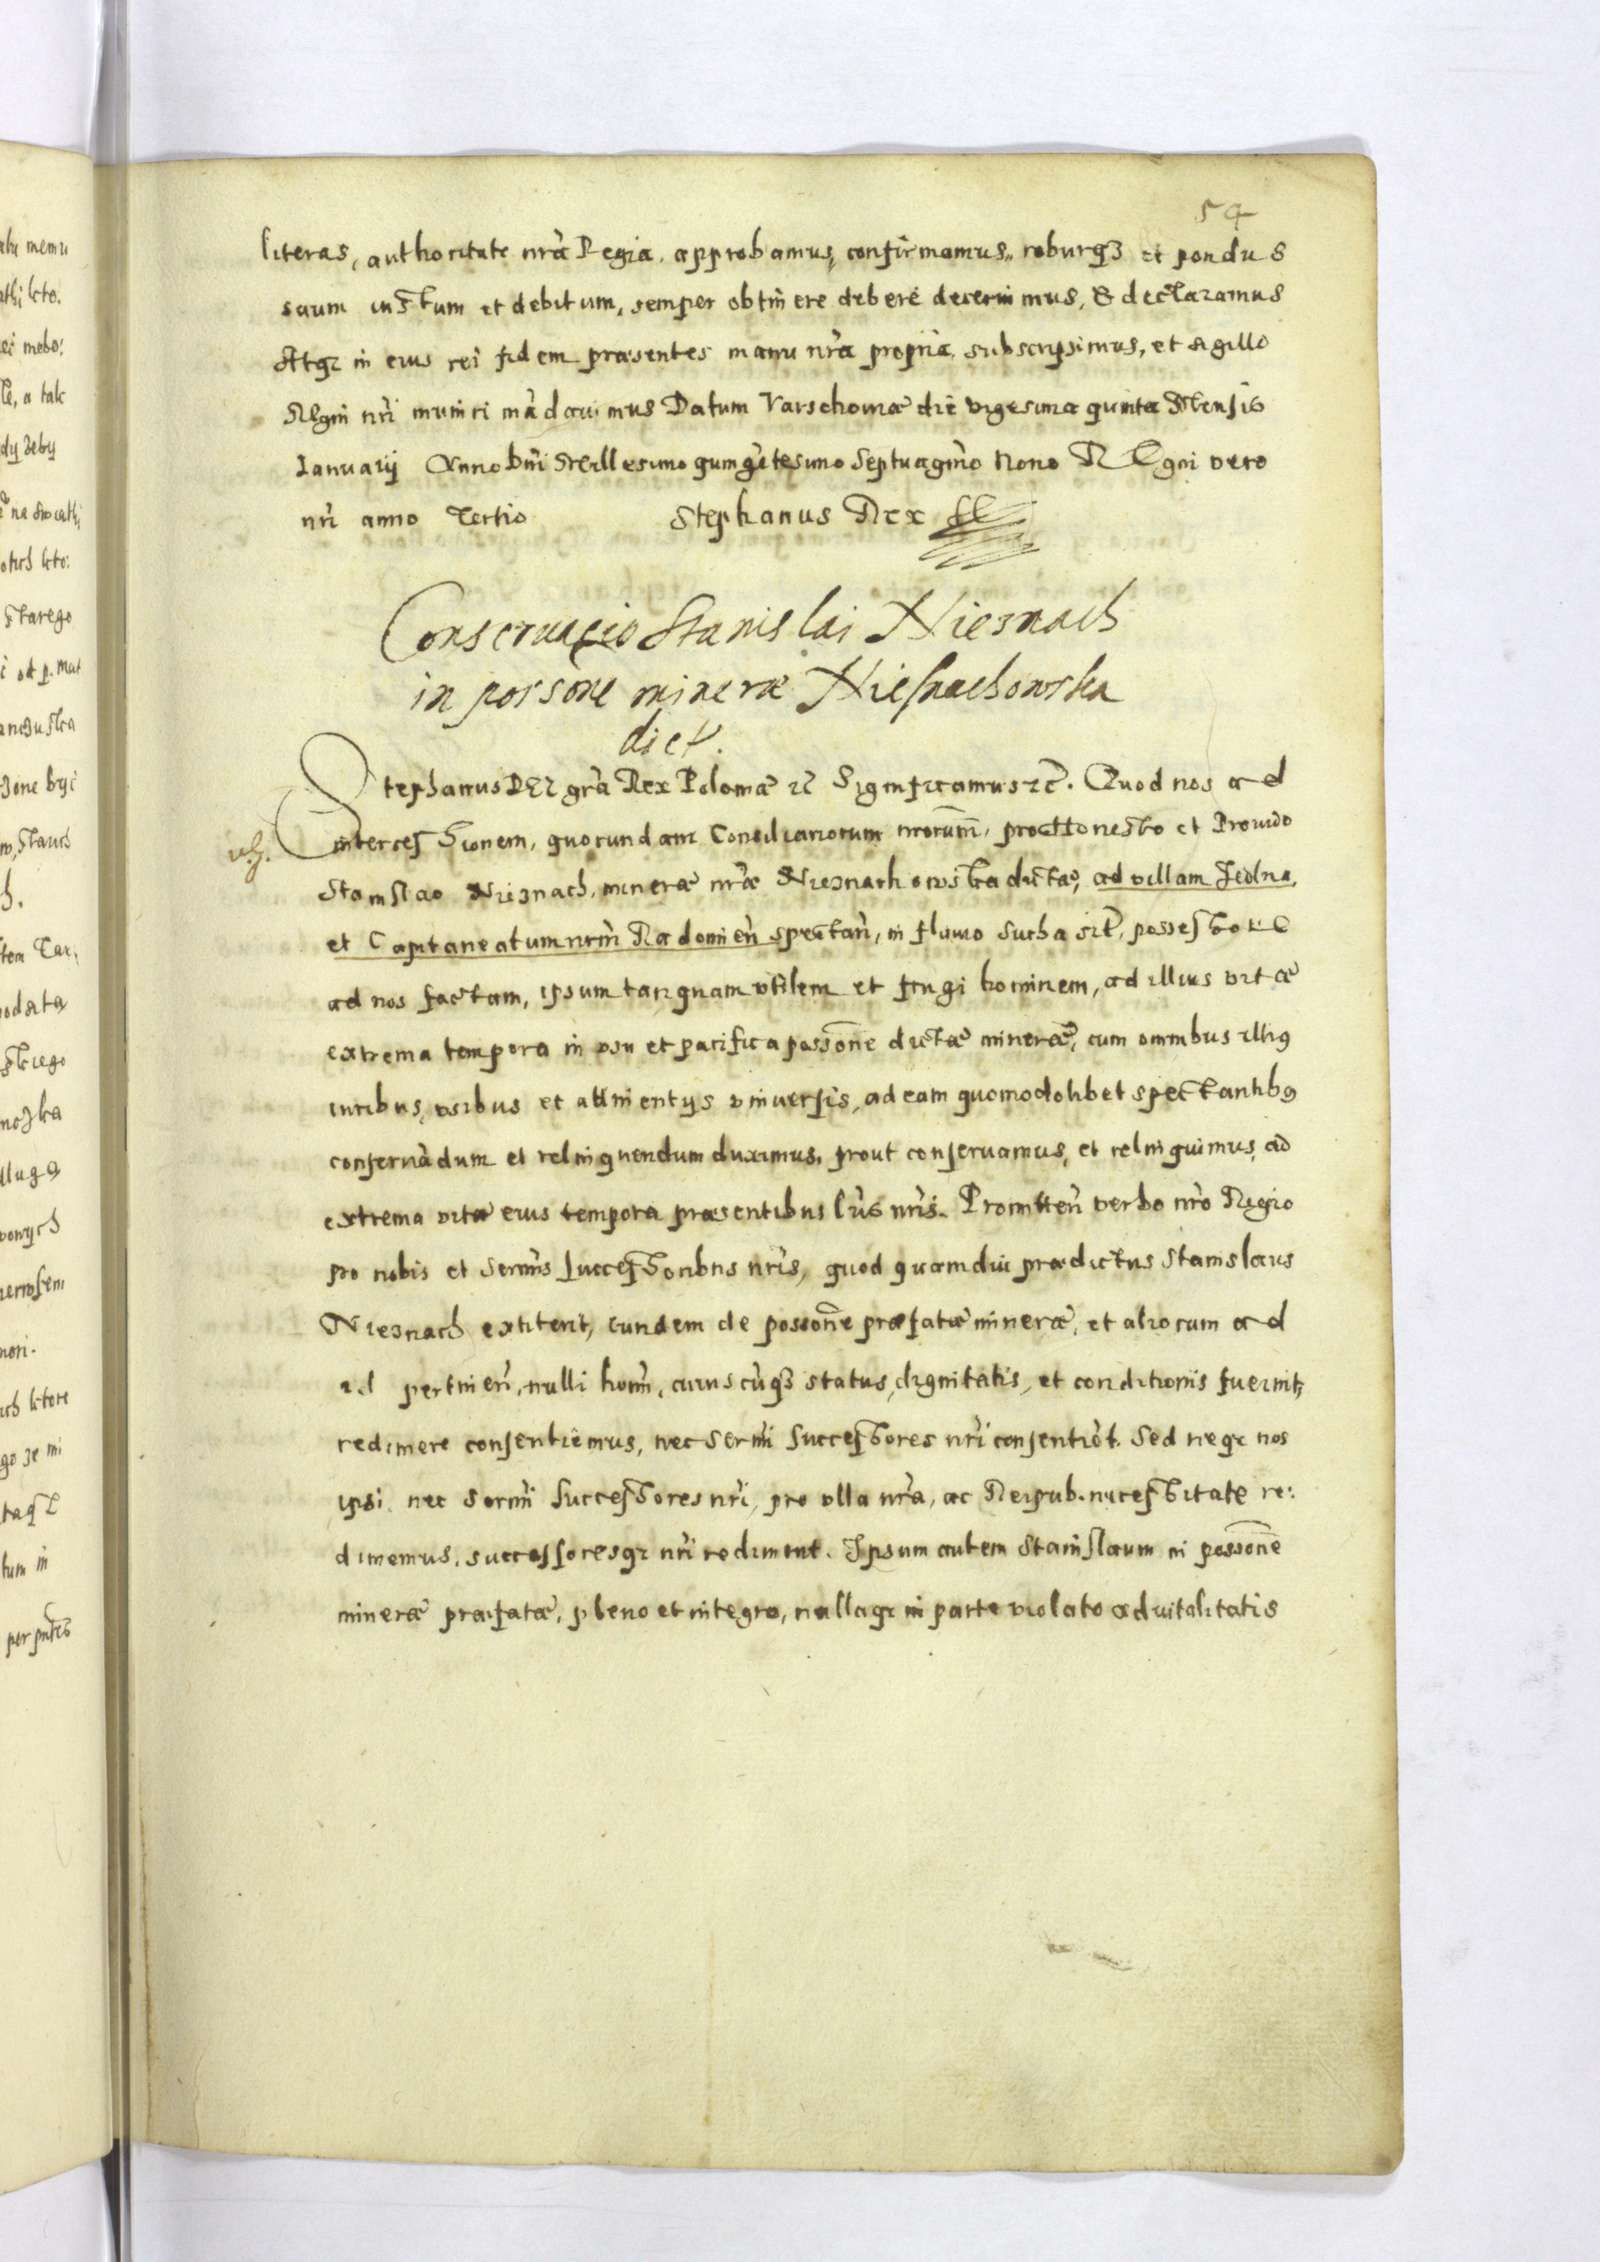 54
literas, authoritate nrã Regia, approbamus, confirmamus, roburq3 et pondus
suum iustum et debitum, semper obtinere debere decernimus, & declaramus
Atq3 in eius rei fidem præsentes manu nrã propria subscripsimus, et sigillo
Regni nri muniri mãdauimus Datum Varschouiæ die vigesima quinta Mensis
Ianuarij Anno Dñi Millesimo quingẽtesimo Septuagmo Nono REgni vero
nri anno Tertio Stephanus Rex
Conseruacio Stanislai Nieznach
in possone mineræ Niesnachowska
dict.
Stephanus DEI grã Rex Poloniæ zc Significamus zc. Quod nos ad
intercessionem, quorundam Consiliariorum nrorum, pro Honesto et Prouido
Stanislao Nieznach, mineræ nræ Nieznachowska dictæ, ad villam Jedlna,
et Capitaneatum nrm Radomieñ spectañ, in fluuio Sucha sit, possessore
ad nos factam, ipsum tanquam vtilem et frugi hominem, ad illius vitæ
extrema tempora in vsu et pacifica possone dictæ mineræ, cum omnibus illius
iuribus, vsibus et attinentijs vniuersis, ad eam quomodolibet spectantibus
conseruãdum et relinquendum duximus, prout conseruamus, et relinquimus, ad
extrema vitæ eius tempora præsentibus lris nris. Promitteñ verbo nro Regio
pro nobis et Sermis Successoribus nris, quod quamdiu prædictus Stanislaus
Nieznach extiterit, eundem de possone præfatæ mineræ, et aliorum ad
id pertineñ, nulli homi, cuiuscũq3 status, dignitatis, et conditionis fuerint,
redimere consentiemus, nec Sermi Successores nri consentiẽt. Sed neq3 nos
ipsi nec Sermi Successores nri, pro vlla nra, ac Reipub. necessitate re:
dimemus, successoresq3 nri rediment. Ipsum autem Stanislaum in possone
mineræ præfatæ, pleno et integro, nullaq3 in parte violato aduitalitatis